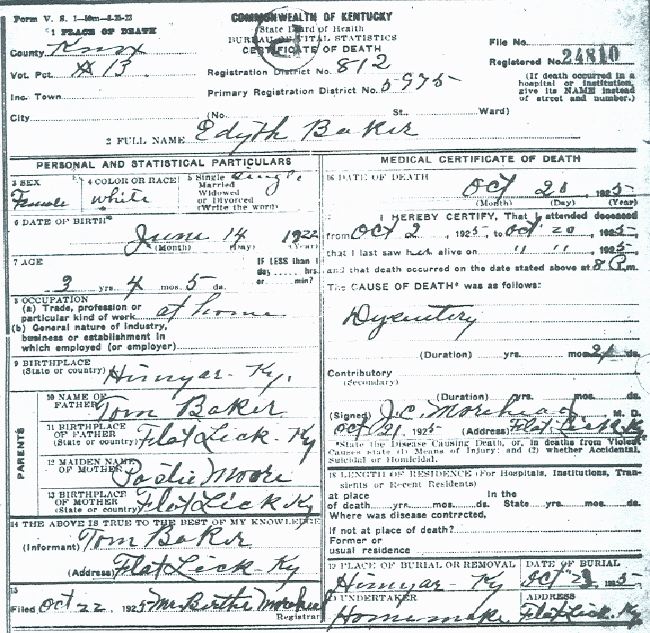 Form V. S. 1
COMMONWEALTH OF KENTUCKY
State Board of Health
BUREAU OF VITAL STATISTICS
CERTIFICATE OF DEATH
1 PLACE OF DEATH
County Knox
Vot. Pct. #13
Inc. Town
City
Registration District No. 812
Primary Registration District No. 5975
(No. St. Ward)
File No.
Registered No. 24810
(If death occurred in a hospital or institution, give its NAME instead of street and number.)
2 FULL NAME Edyth Baker
PERSONAL AND STATISTICAL PARTICULARS
3 SEX Female
4 COLOR OR RACE white
5 Single Married Widowed or Divorced (Write the word) Single
6 DATE OF BIRTH June 14 1922
(Month) (Day) (Year)
7 AGE 3 yrs. 4 mos. 5 ds.
IF LESS than 1 day hrs. or min?
8 OCCUPATION
(a) Trade, profession or particular kind of work at home
(b) General nature of industry, business or establishment in which employed (or employer)
9 BIRTHPLACE (State or country) Himyar-Ky.
PARENTS
10 NAME OF FATHER Tom Baker
11 BIRTHPLACE OF FATHER (State or country) Flat Lick-Ky
12 MAIDEN NAME OF MOTHER Moore
13 BIRTHPLACE OF MOTHER (State or country) Flat Lick Ky
14 THE ABOVE IS TRUE TO THE BEST OF MY KNOWLEDGE
(Informant) Tom Baker
(Address) Flat Lick-Ky
15
Filed Oct 22, 1925 Mrs Berthe Morehead
Registrar
MEDICAL CERTIFICATE OF DEATH
16 DATE OF DEATH Oct 20, 1925
(Month) (Day) (Year)
I HEREBY CERTIFY, That I attended deceased
from Oct 2, 1925 to Oct 20, 1925
that I last saw her alive on " " 1925
and that death occurred on the date stated above at 8 P.m.
The CAUSE OF DEATH* was as follows:
Dysentery
(Duration) yrs. mos. ds.
Contributory
(Secondary)
(Duration) yrs. mos. ds.
(Signed) J.C. Morehead, M. D.
Oct 21 1925 (Address) Flat Lick Ky
*State the Disease Causing Death, or, in deaths from Violent Causes state (1) Means of Injury; and (2) whether Accidental, Suicidal or Homicidal.
18 LENGTH OF RESIDENCE (For Hospitals, Institutions, Transients or Recent Residents)
at place of death yrs. mos. ds. In the State yrs. mos. ds.
Where was disease contracted,
if not at place of death?
Former or usual residence
19 PLACE OF BURIAL OR REMOVAL Himyar-Ky
DATE OF BURIAL Oct 1925
UNDERTAKER Homemake
ADDRESS Flat Lick, Ky